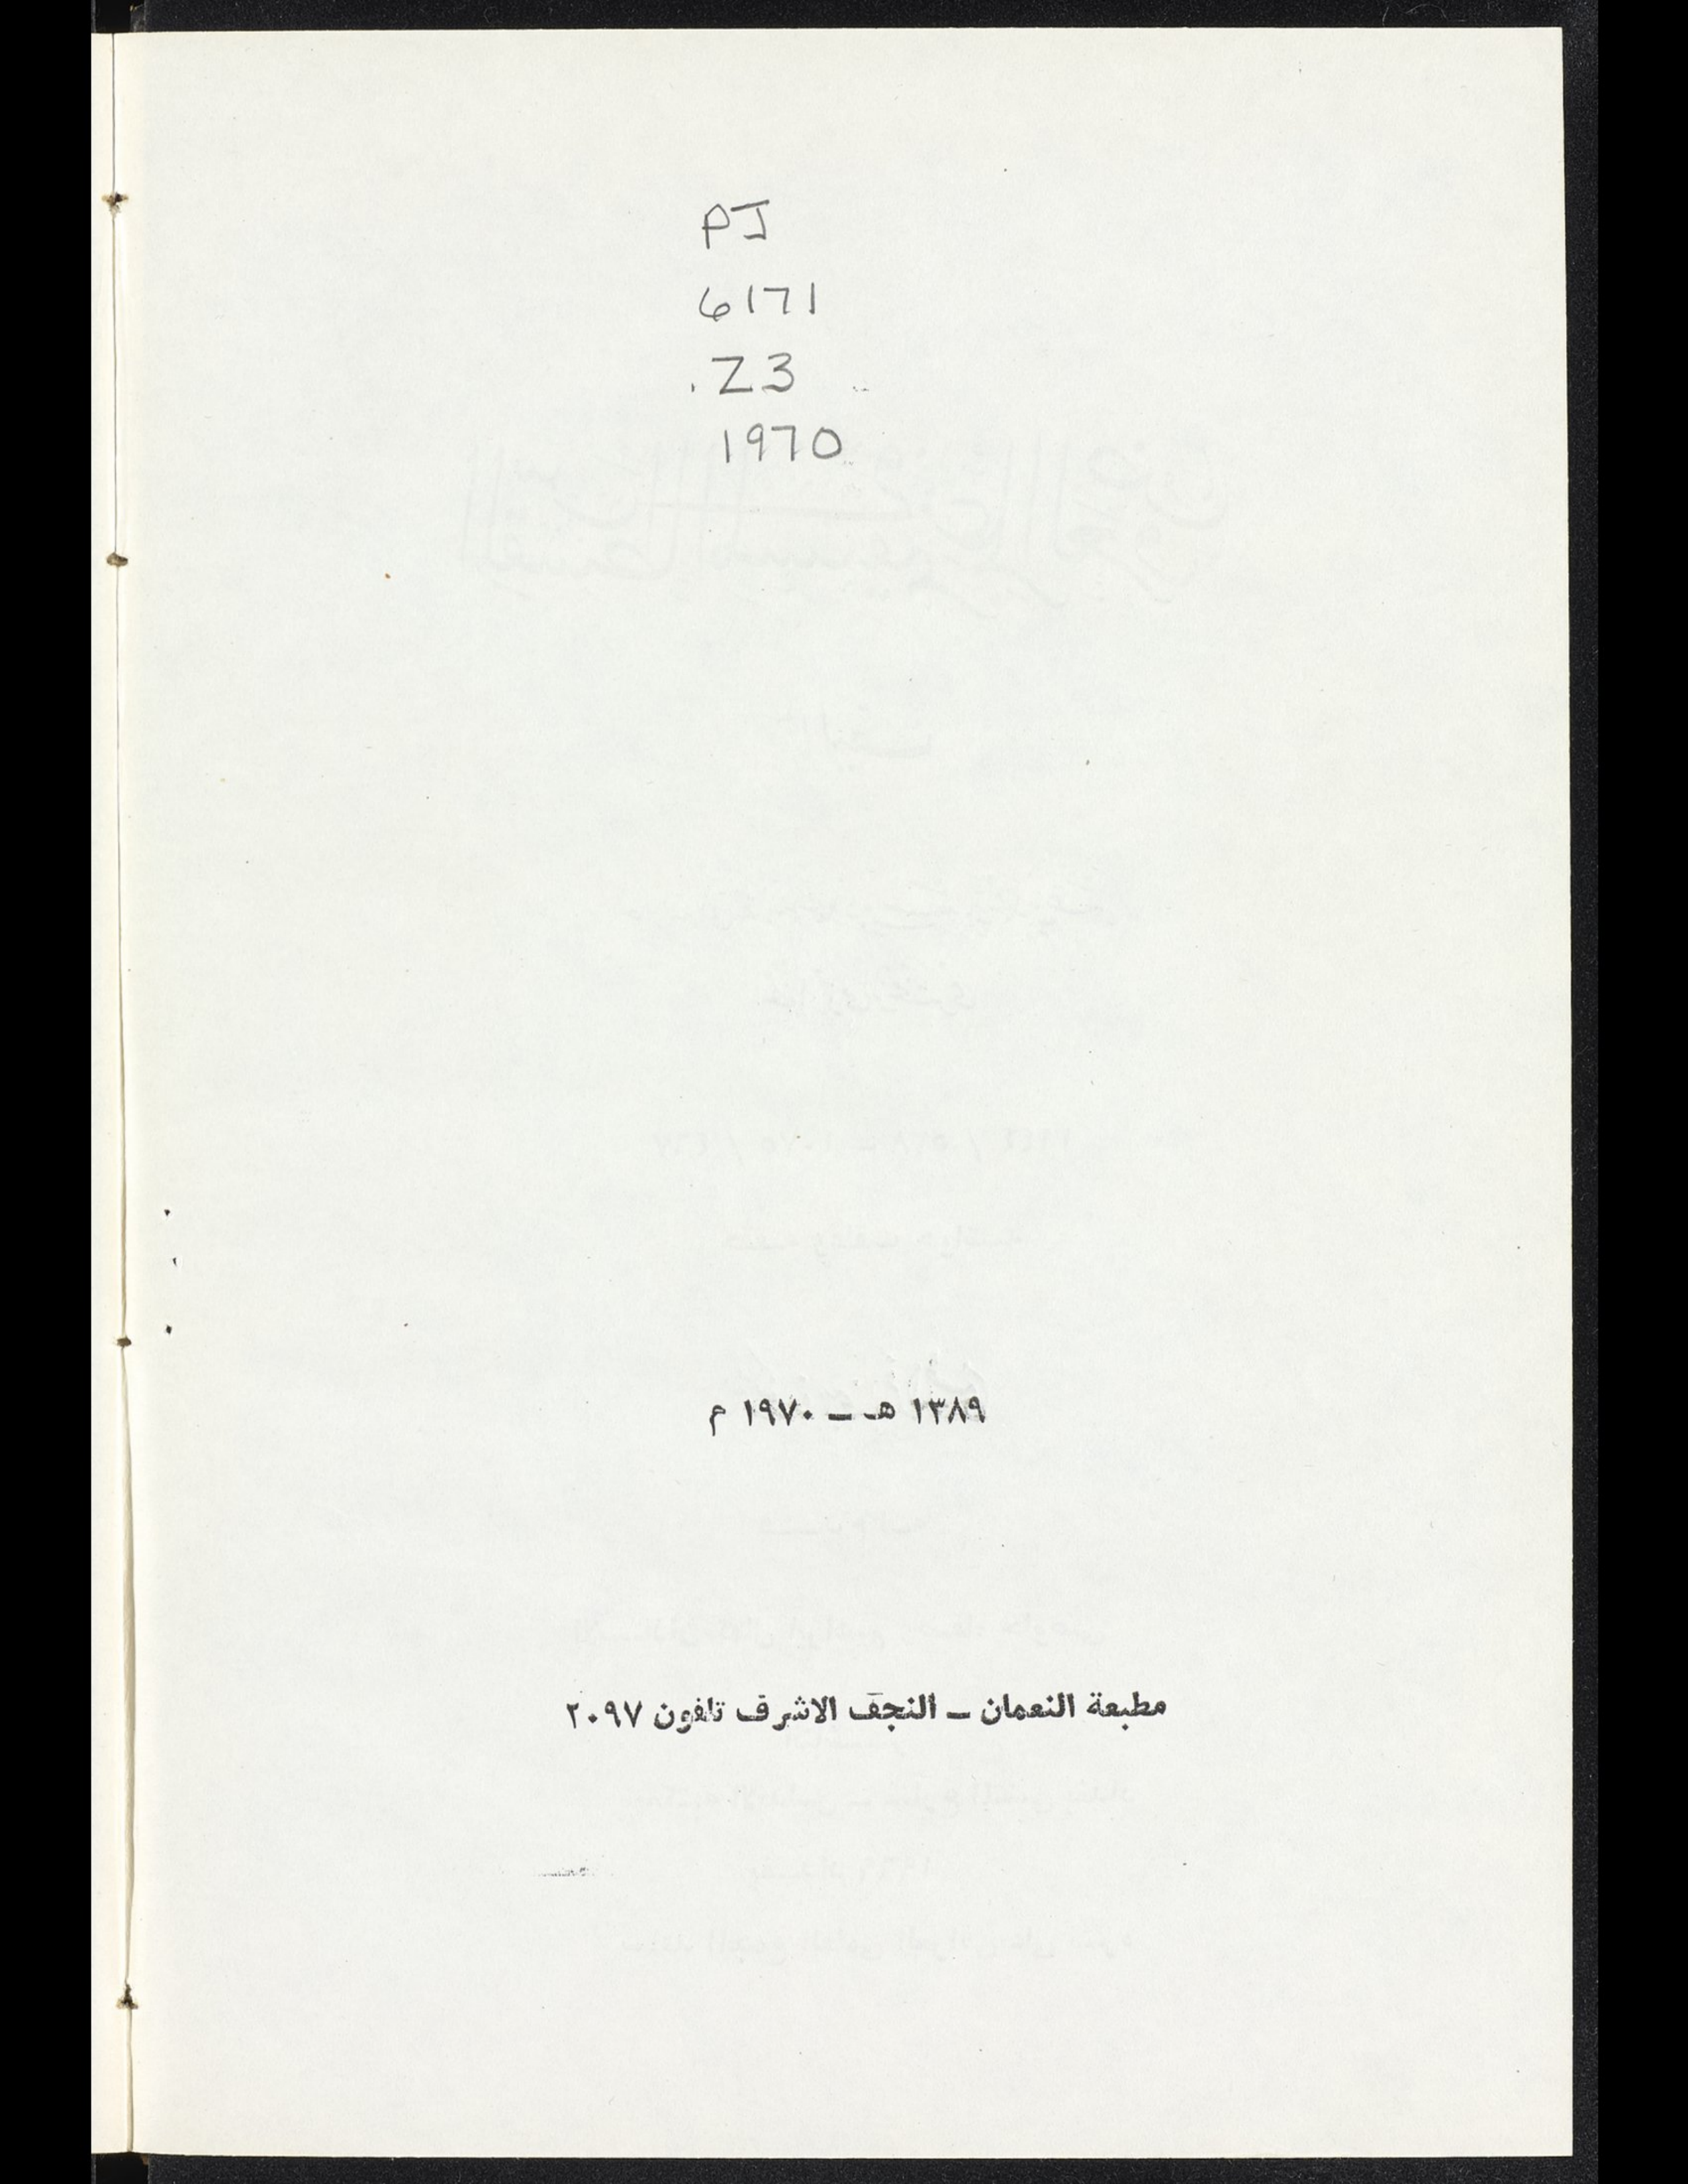 PJ
6171
.Z3
1970
١٣٨٩ هـ ـ ١٩٧٠ م
مطبعة النعمان ـ النجف الاشرف تلفون ٢٠٩٧